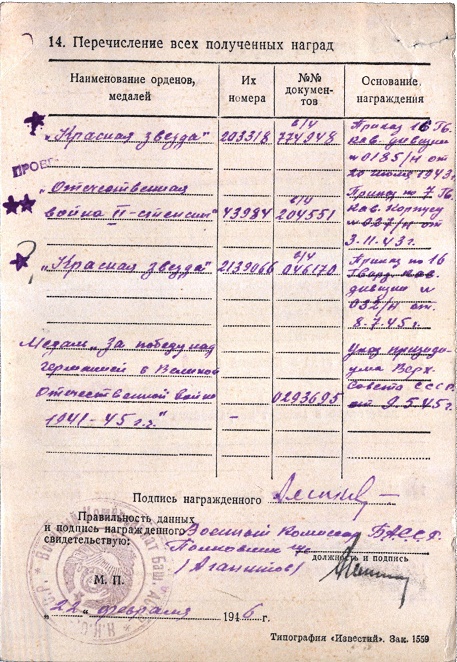 14. Перечисление всех полученных наград
Наименование орденов, медалей
Их номера
№№ документов
Основание награждения
„Красная звезда" 203318 в/ч 774948 Приказ 16 Гв.
кав. дивизии
№0185/н от
20 июля 1943г.
ПРОВЕ
„Отечественная
война II-степени" 43984 в/ч 204551
Приказ по 7 Гв.
кав. корпусу
№037/н от
3.11.43г.
„Красная звезда" 2139066 в/ч 046170
Приказ по 16
Гвард. кав.
дивизии №
032/н от.
8.7.45г.
Медаль „За победу над
германией в Великой
Отечественной войне
1941-45г.г." - 0293695
Указ президи-
ума Верх.
Совета СССР.
от 9.5.45г.
Подпись награжденного
Правильность данных
и подпись награжденного
свидетельствую:
Военный Комиссар БАССР.
Полковник
должность и подпись
М. П.
(Агапитов)
„22" февраля 1946 г.
Типография «Известий». Зак. 1559